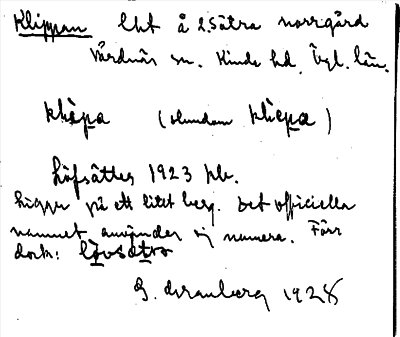 Klippan lht å Sätra norrgård
Vårdnäs sn. Kinda hd. Ögl. län.
klìpa (stundom klìepa)
Löfsätter 1923 jb.
Ligger på ett litet berg. Det officiella
namnet användes ej numera. Förr
dock: lövsätra
G. Franberg 1928